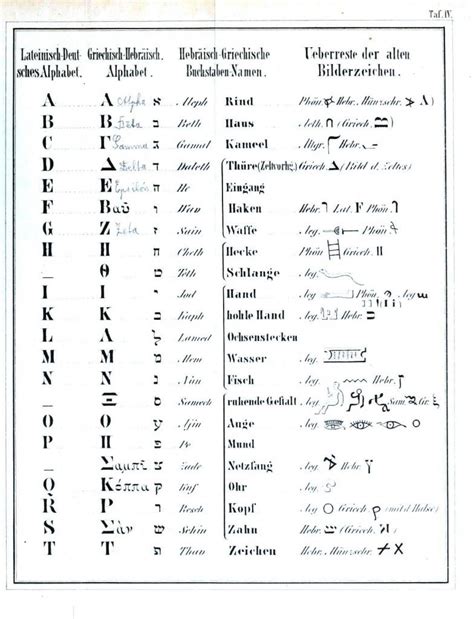 Taf. IV.
Lateinisch-Deut- Griechisch-Hebräisch. Hebräisch-Griechische Ueberreste der alten
sches Alphabet. Alphabet. Buchstaben-Namen. Bilderzeichen.
A Α Alpha א Aleph Rind Phön. Hebr. Münzschr.
B Β Beta ב Beth Haus Aeth. (Griech.
C Γ Gamma ג Gamal Kameel Hebr.
D Δ Delta ד Daleth Thüre (Zeltvorhg.) Griech. Δ (Bild d. Zeltes)
E Ε Epsilon ה He Eingang
F Βαῦ ו Waw Haken Hebr. ו Lat. F Phön.
G Ζ Zeta ז Sain Waffe Aeg. Phön.
H Η ח Cheth Hecke Phön. Griech. H
_ Θ ט Teth Schlange Aeg.
I Ι י Jod Hand Aeg. Phön. Aeg.
K Κ כ Kaph hohle Hand Aeg. Hebr. כ
L Λ ל Lamed Ochsenstecken
M Μ מ Mem Wasser Aeg.
N Ν נ Nun Fisch Aeg. Hebr.
_ Ξ ס Samech ruhende Gestalt Aeg. Sam. Gr. ξ
O Ο ע Ajin Auge Aeg. O
P Π פ Pe Mund
_ Σαμπῖ צ Zade Netzfang Aeg. Hebr.
Q Κόππα ק Kuf Ohr Aeg.
R Ρ ר Resch Kopf Aeg. Griech. ρ (mit d. Halse)
S Σὰν ש Schin Zahn Hebr. ש (Griech.
T Τ ת Thau Zeichen Hebr. Münzschr. X